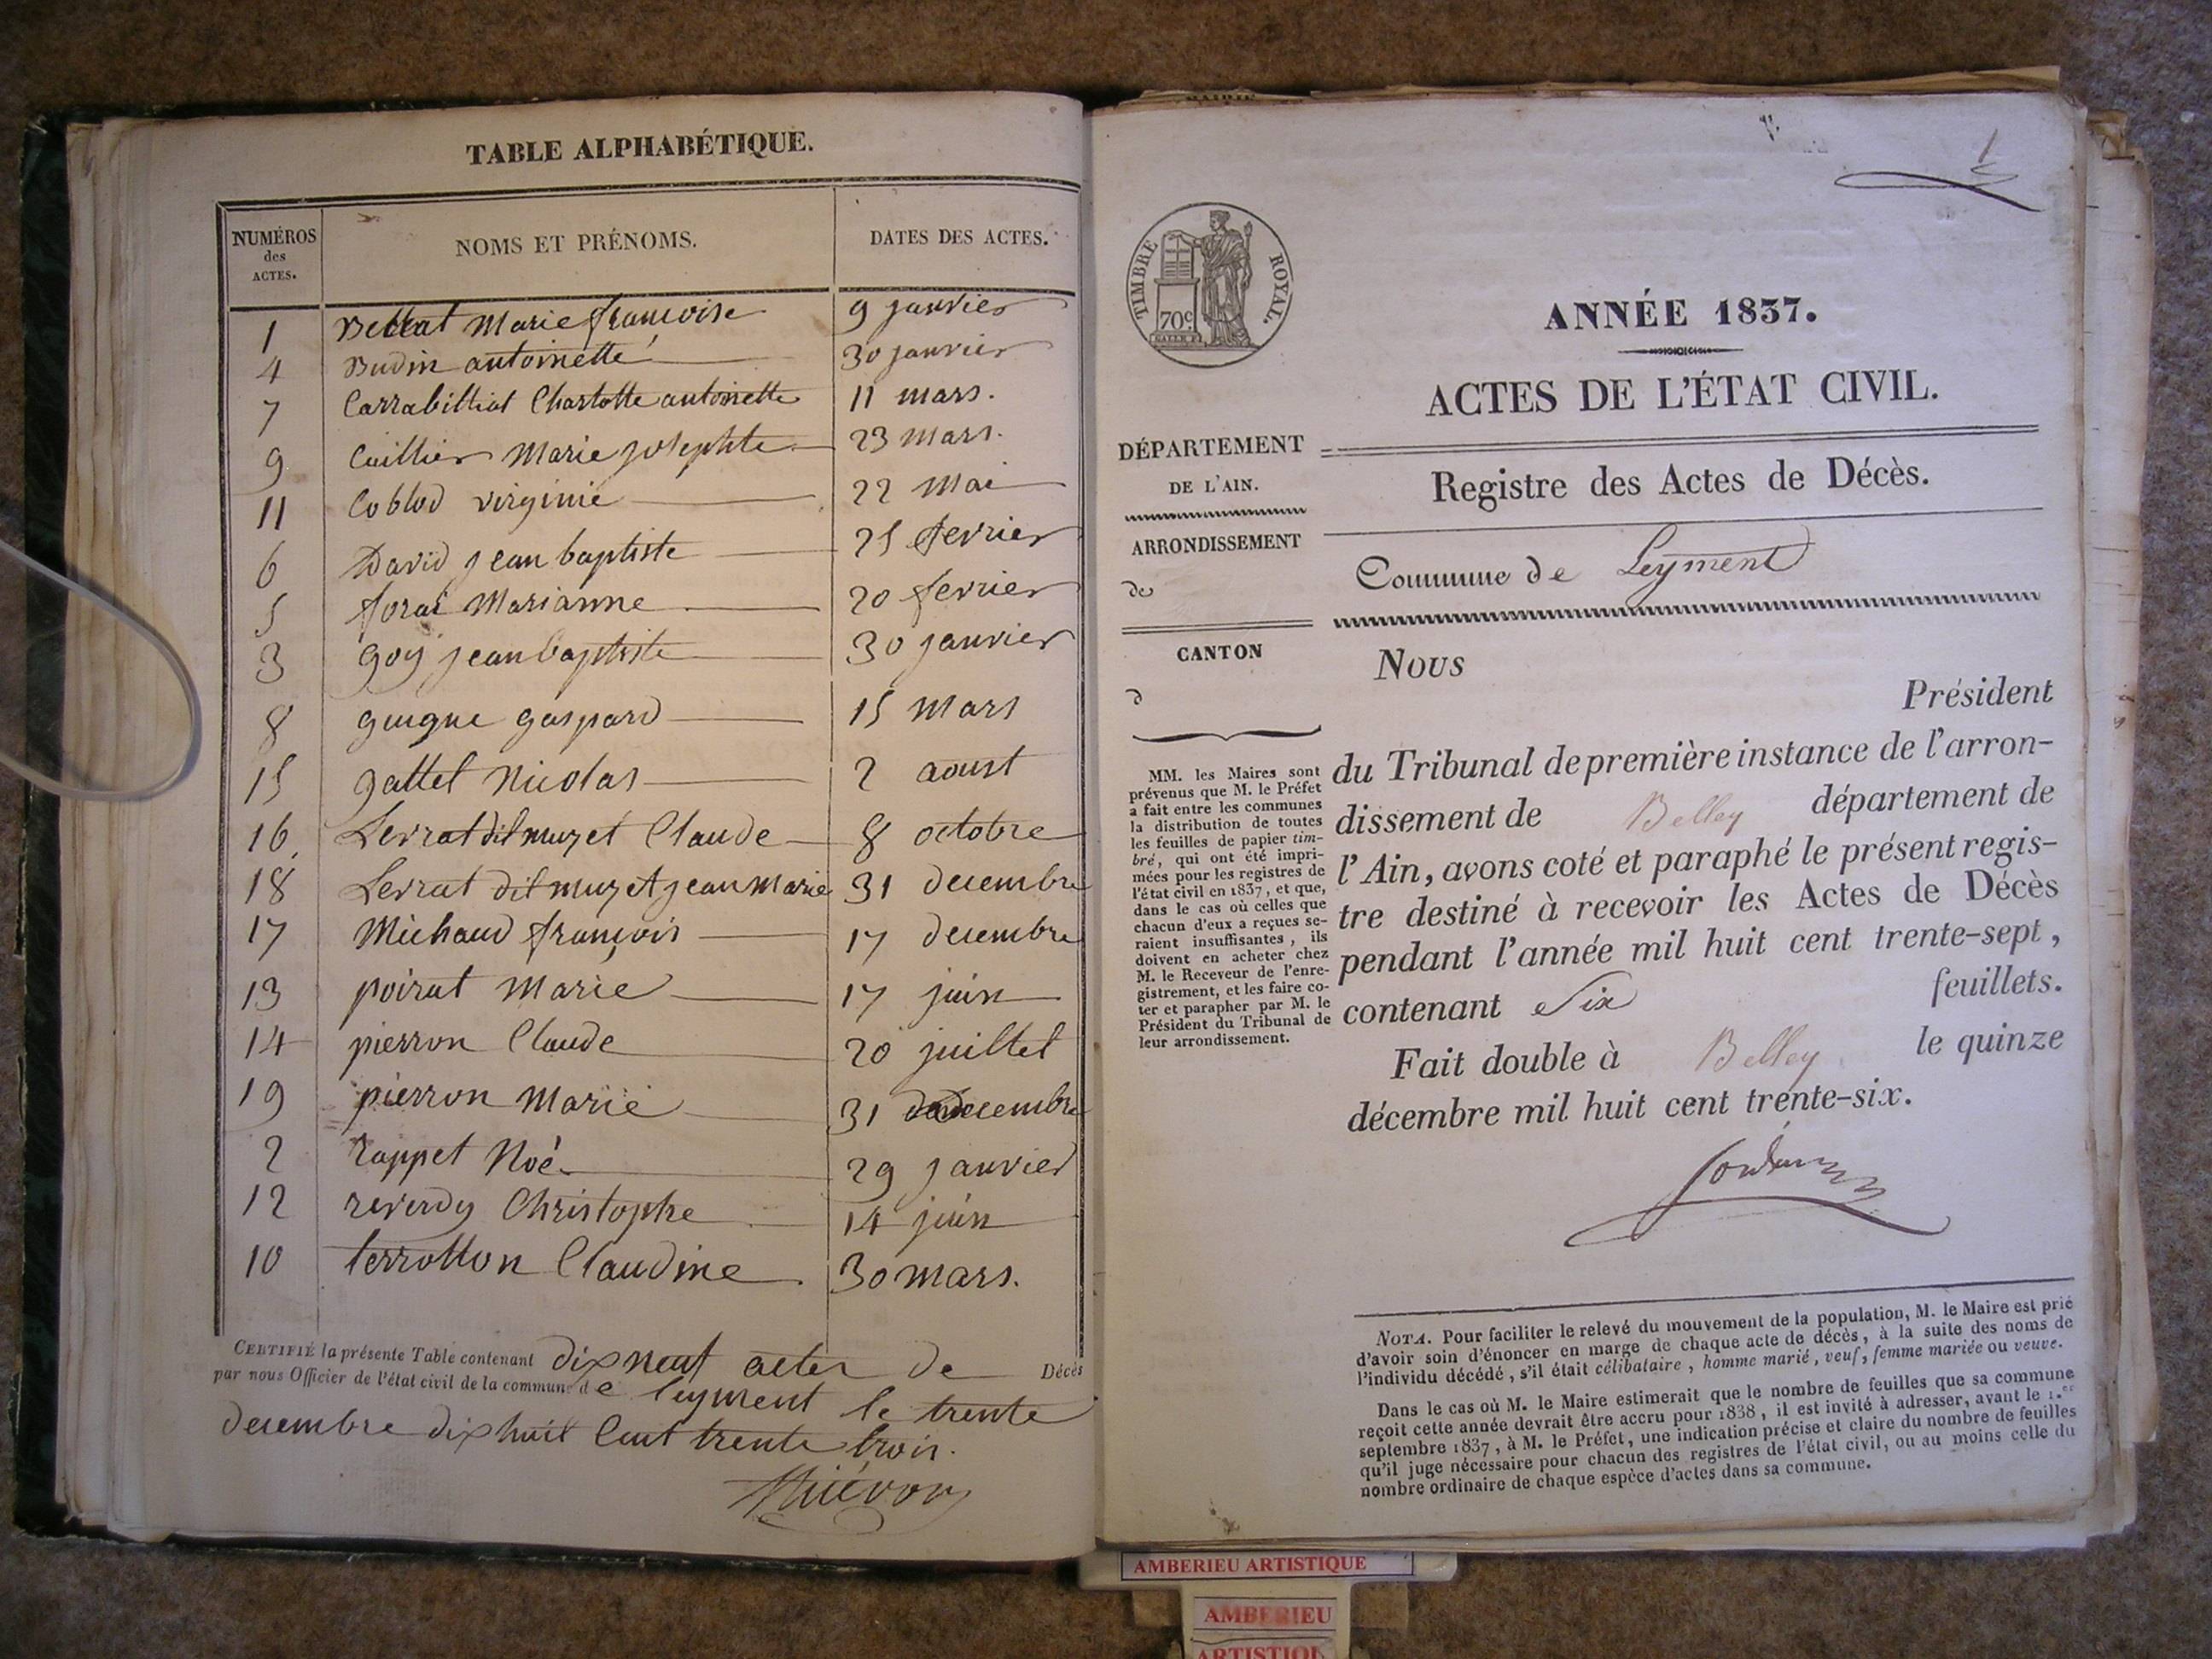 TABLE ALPHABÉTIQUE.
NUMÉROS des ACTES. NOMS ET PRÉNOMS. DATES DES ACTES.
1 Bellat Marie françoise 9 janvier
4 Budin antoinette 30 janvier
7 Carrabilliat Charlotte antoinette 11 mars.
9 Cuillier Marie josephte 23 mars.
11 Coblod virginie 22 mai
6 David jean baptiste 25 fevrier
5 forai Marianne 20 fevrier
3 goy jean baptiste 30 janvier
8 guigue gaspard 15 mars
15 gattel Nicolas 2 aoust
16 Lerrat dit muzet Claude 8 octobre
18 Lerrat dit muzet jean marie 31 decembre
17 Michaud françois 17 decembre
13 poirat Marie 17 juin
14 pierron Claude 20 juillet
19 pierron Marie 31 decembre
2 rappet Noé 29 janvier
12 reverdy Christophe 14 juin
10 terrollon Claudine 30 mars.
CERTIFIÉ la présente Table contenant dix neuf actes de Décès
par nous Officier de l'état civil de la commune de leyment le trente
decembre dix huit Cent trente trois.
MAIRIE
1
TIMBRE ROYAL.
70c
ANNÉE 1837.
ACTES DE L'ÉTAT CIVIL.
Registre des Actes de Décès.
DÉPARTEMENT
DE L'AIN.
ARRONDISSEMENT
de
CANTON
d
Commune de Leyment
MM. les Maires sont
prévenus que M. le Préfet
a fait entre les communes
la distribution de toutes
les feuilles de papier tim-
bré, qui ont été impri-
mées pour les registres de
l'état civil en 1837, et que,
dans le cas où celles que
chacun d'eux a reçues se-
raient insuffisantes, ils
doivent en acheter chez
M. le Receveur de l'enre-
gistrement, et les faire co-
ter et parapher par M. le
Président du Tribunal de
leur arrondissement.
Nous
Président
du Tribunal de première instance de l'arron-
dissement de Belley département de
l'Ain, avons coté et paraphé le présent regis-
tre destiné à recevoir les Actes de Décès
pendant l'année mil huit cent trente-sept,
contenant Six feuillets.
Fait double à Belley le quinze
décembre mil huit cent trente-six.
NOTA. Pour faciliter le relevé du mouvement de la population, M. le Maire est prié
d'avoir soin d'énoncer en marge de chaque acte de décès, à la suite des noms de
l'individu décédé, s'il était célibataire, homme marié, veuf, femme mariée ou veuve.
Dans le cas où M. le Maire estimerait que le nombre de feuilles que sa commune
reçoit cette année devrait être accru pour 1838, il est invité à adresser, avant le 1.er
septembre 1837, à M. le Préfet, une indication précise et claire du nombre de feuilles
qu'il juge nécessaire pour chacun des registres de l'état civil, ou au moins celle du
nombre ordinaire de chaque espèce d'actes dans sa commune.
AMBERIEU ARTISTIQUE
AMBERIEU
ARTISTIQUE